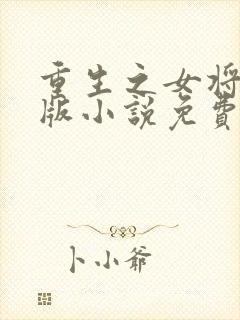 重生之女将
版小说免费
卜小爷